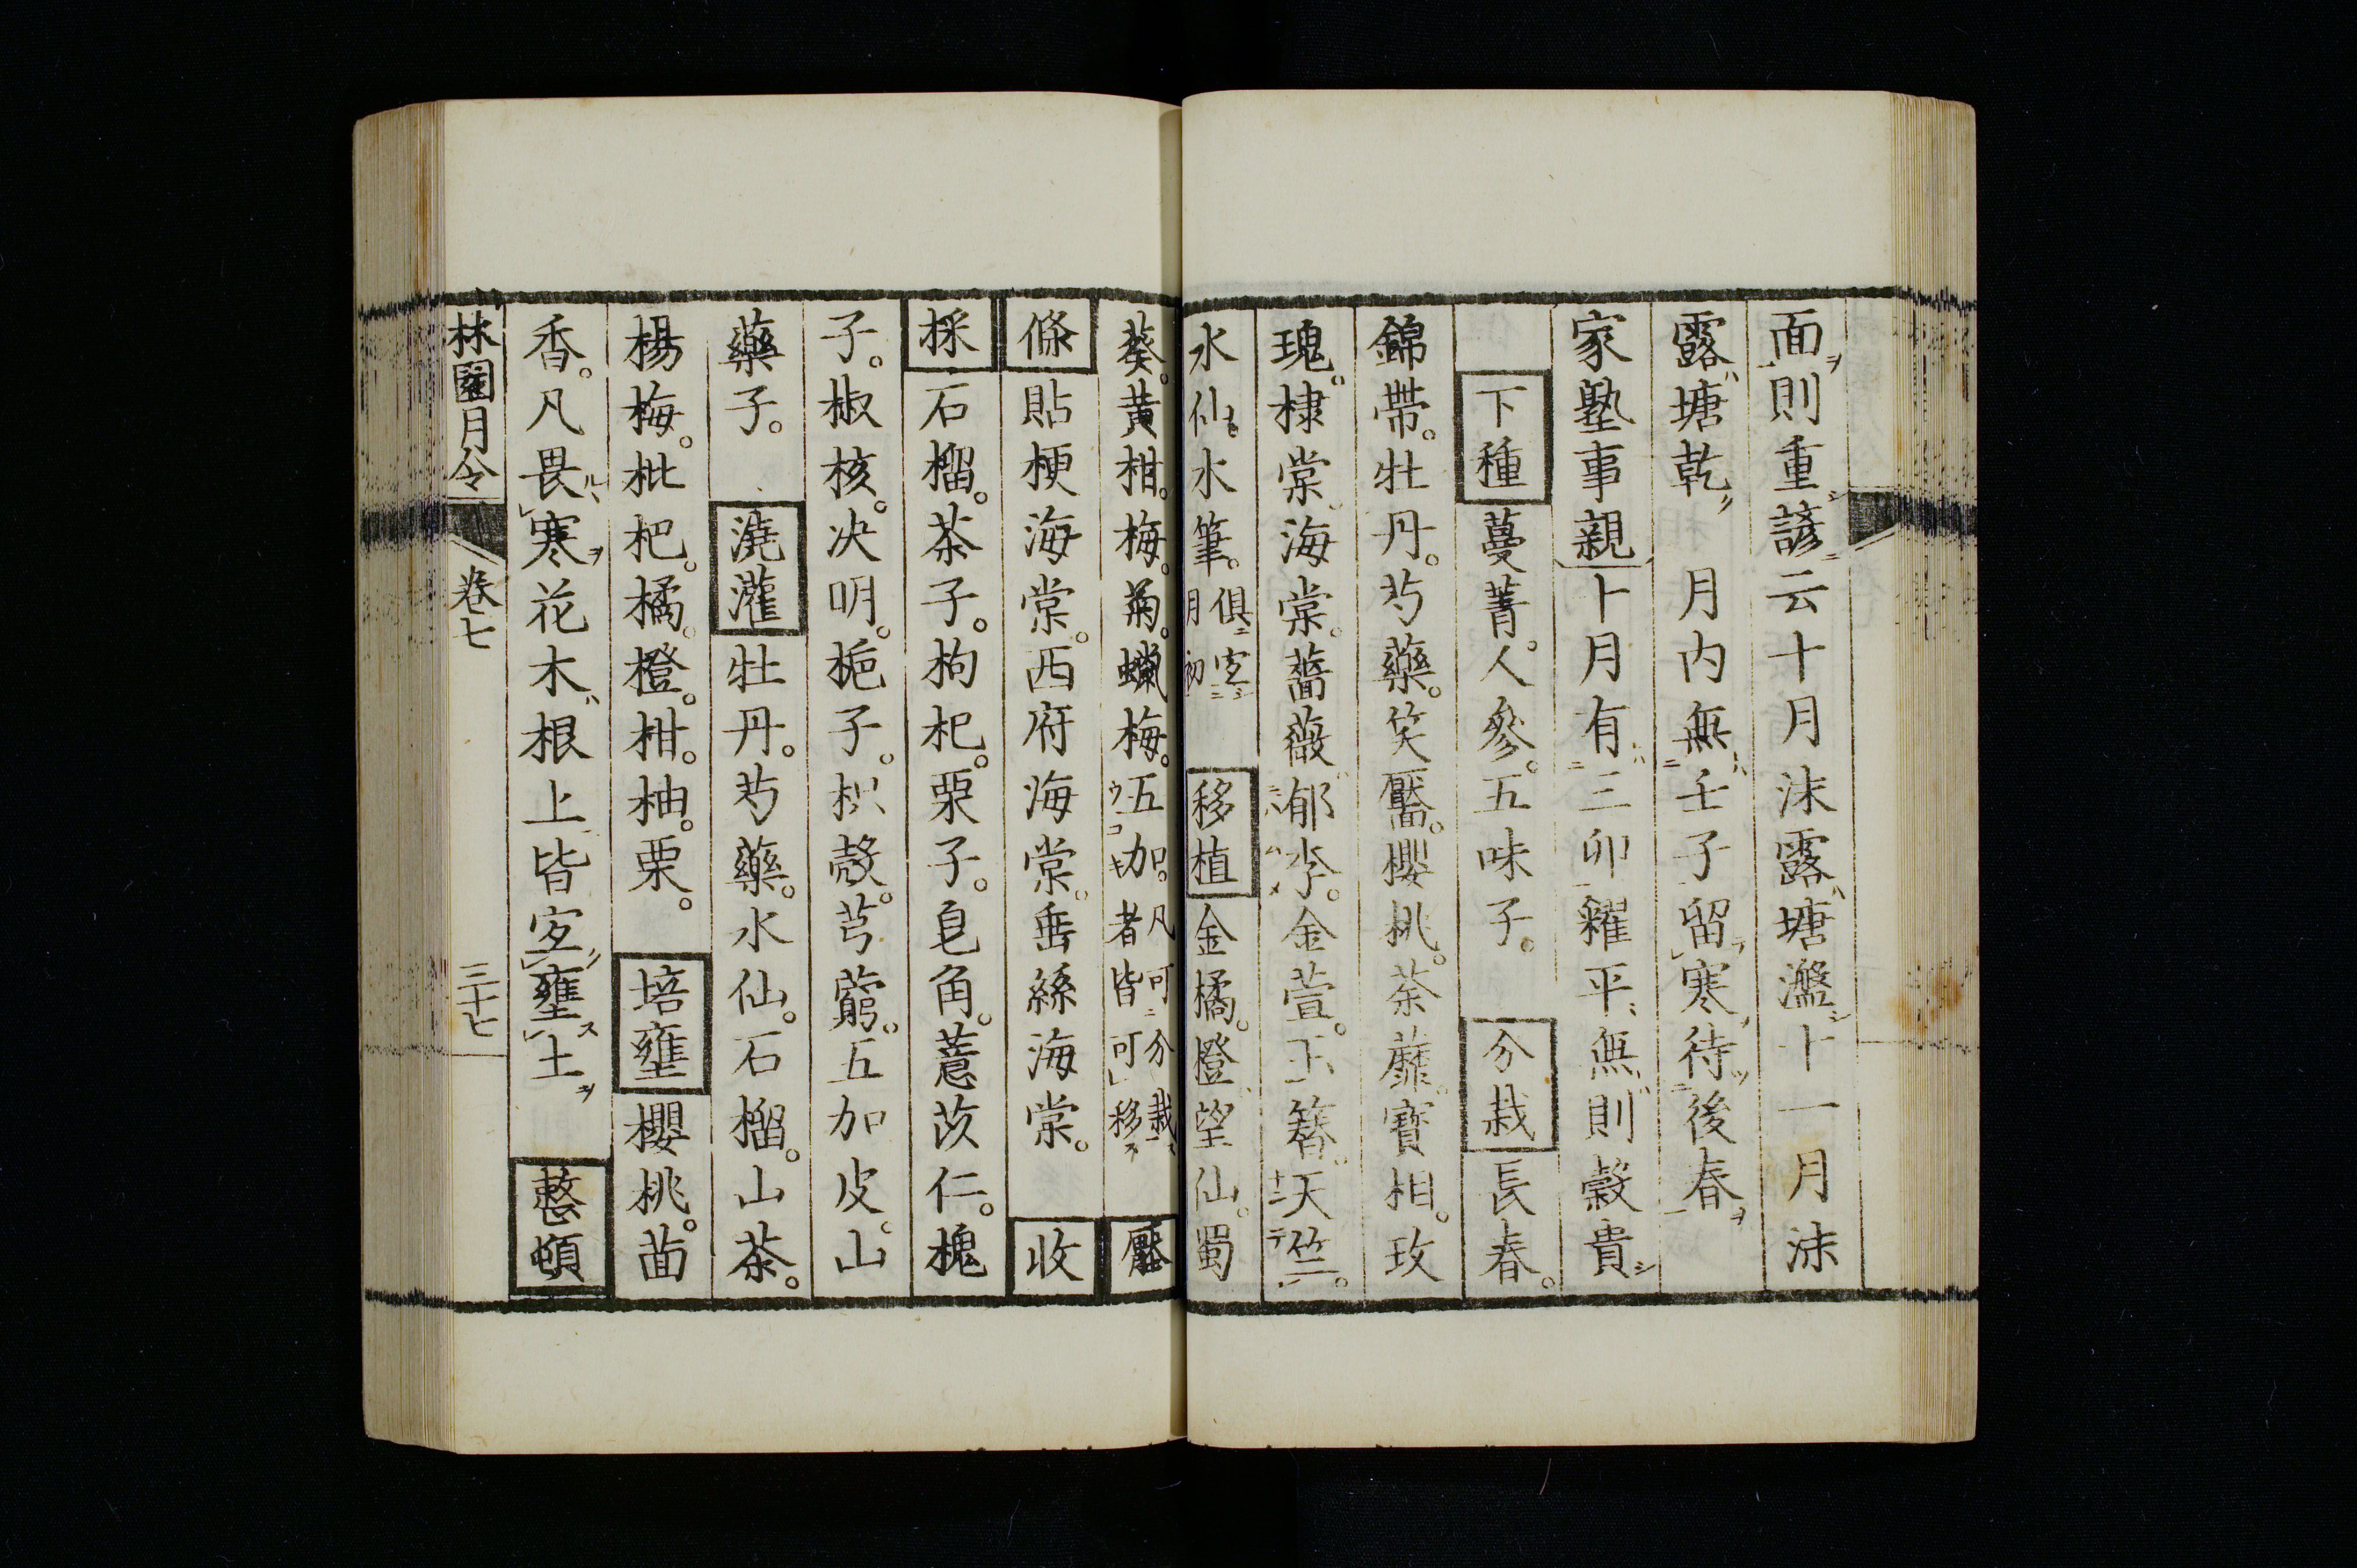 面則重諺云十月沫露塘瀊十一月沫
露塘乾　月内無壬子留寒待後春
家塾事親卜月有三卯糴平無則穀貴
下種　蔓菁。人參。五味子。　分栽　長春。
錦帶。牡丹。芍藥。笑靨。櫻桃。荼蘼。寶相。玫
瑰。棣棠。海棠。薔薇。郁李。金萱。玉簪。天竺。
水仙。水筆。俱宜月初　移植　金橘。橙。望仙。蜀
葵。黄柑。梅。菊。蠟梅。五加。凡可分栽者皆可移　壓
條　貼梗海棠。西府海棠。垂絲海棠。　收
採　石榴。茶子。枸杞。栗子。皂角。薏苡仁。槐
子。椒核。决明。梔子。枳殼。芎藭。五加皮。山
藥子。　澆灌　牡丹。芍藥。水仙。石榴。山茶。
楊梅。枇杷。橘。橙。柑。柚。栗。　培壅　櫻桃。茴
香。凡畏寒花木根上皆宜壅土　整頓
林園月令　卷七　三十七